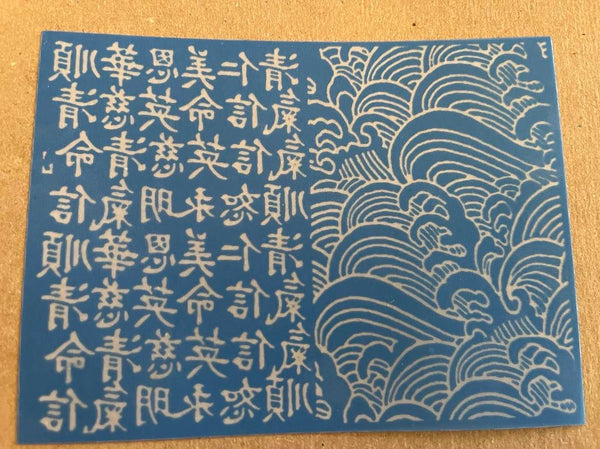 清氣氣順清氣氣順
仁信信恕仁信信恕
美命英永美命英永
恩英慈明恩英慈明
華慈清氣華慈清氣
順清命信順清命信